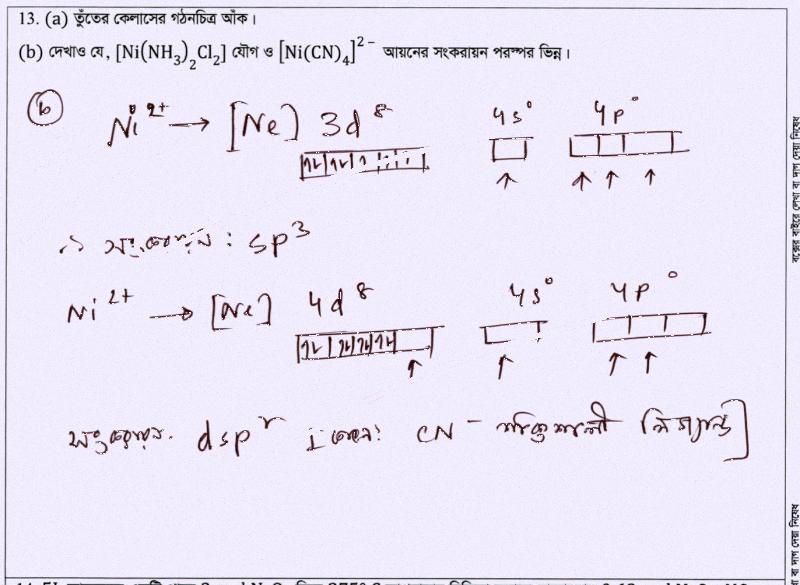 13. (a) তুঁতের কেলাসের গঠনচিত্র আঁক।
(b) দেখাও যে, [Ni(NH₃)₂Cl₂] যৌগ ও [Ni(CN)₄]²⁻ আয়নের সংকরায়ন পরস্পর ভিন্ন।
(b) Ni²⁺ → [Ne] 3d⁸ 4s⁰ 4p⁰
∴ সংকরায়ন : sp³
Ni²⁺ → [Ne] 4d⁸ 4s⁰ 4p⁰
সংকরায়ন. dsp² [কেননা CN⁻ শক্তিশালী লিগ্যান্ড]
বক্সের বাইরে লেখা বা দাগ দেয়া নিষেধ
বা দাগ দেয়া নিষেধ